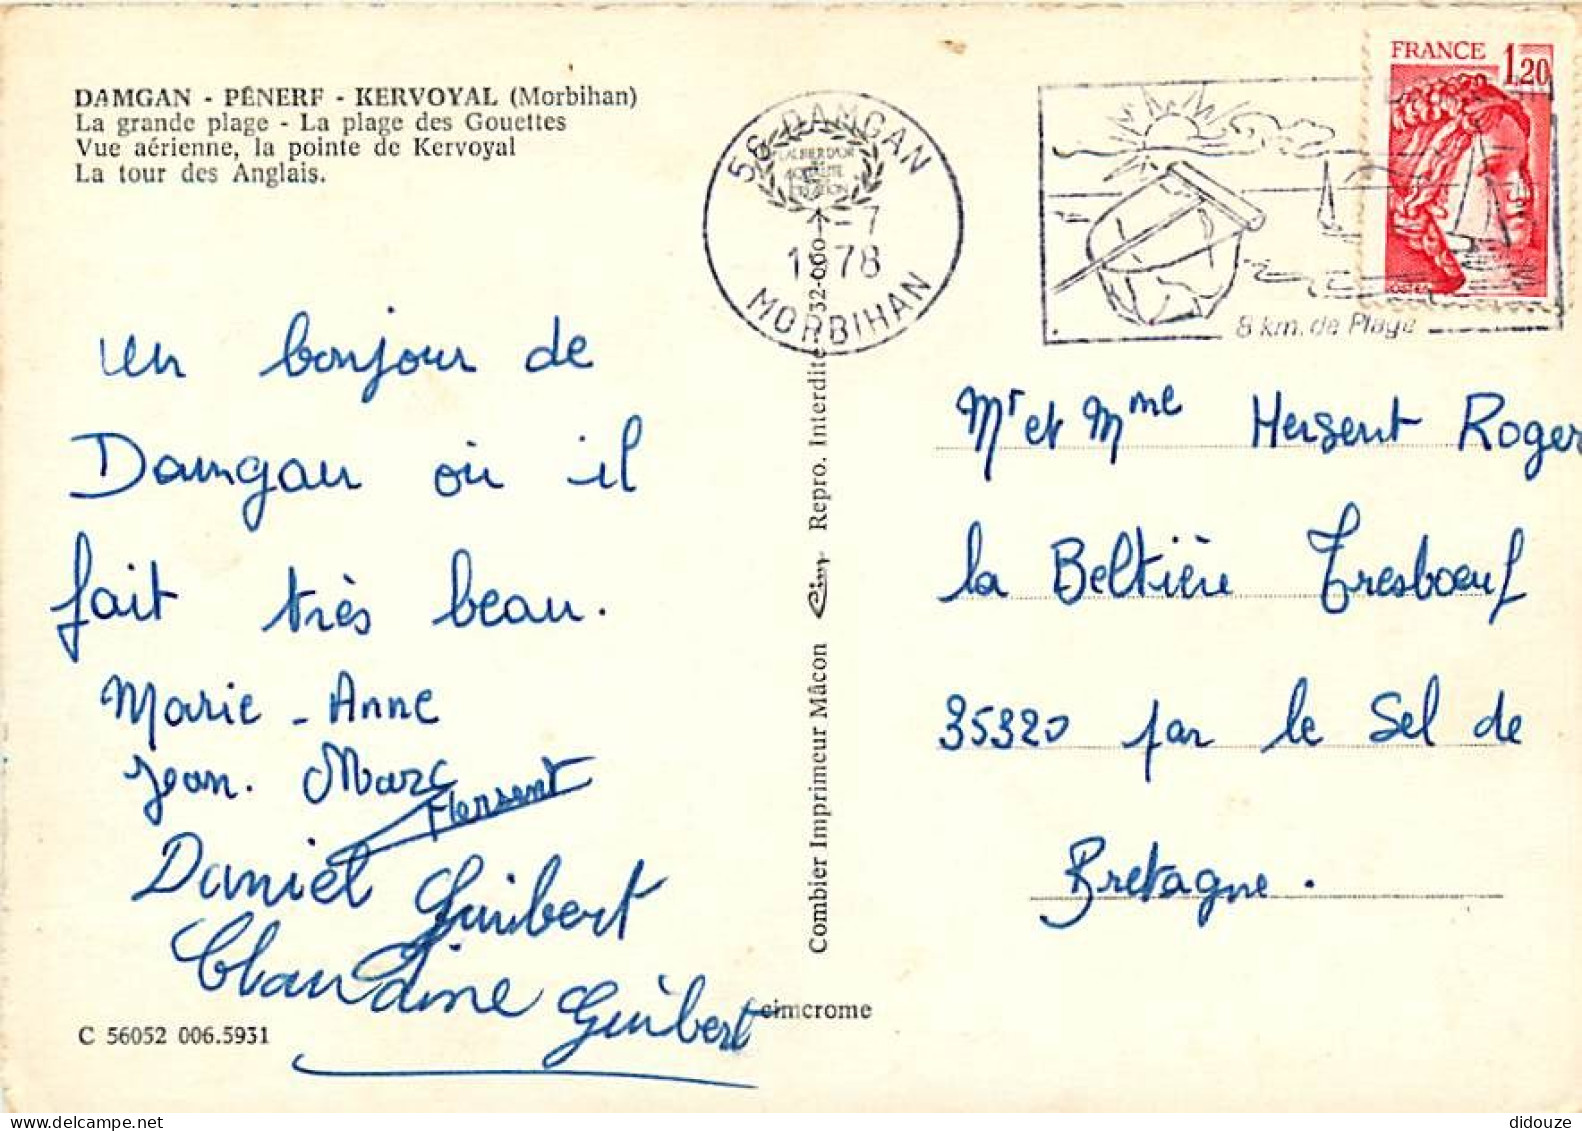 DAMGAN - PÉNERF - KERVOYAL (Morbihan)
La grande plage - La plage des Gouettes
Vue aérienne, la pointe de Kervoyal
La tour des Anglais.
un bonjour de
Damgan où il
fait très beau.
Marie-Anne
Jean-Marc
Hersent
Daniel Guibert
Claudine Guibert
C 56052 006.5931
Combier Imprimeur Mâcon Cim Repro. Interdite 32-000
cimcrome
56 DAMGAN
-7
1978
MORBIHAN
8 km. de Plage
FRANCE 1,20
Mr et Mme Hersent Roger
la Beltière Tresboeuf
35320 par le Sel de
Bretagne.
didouze